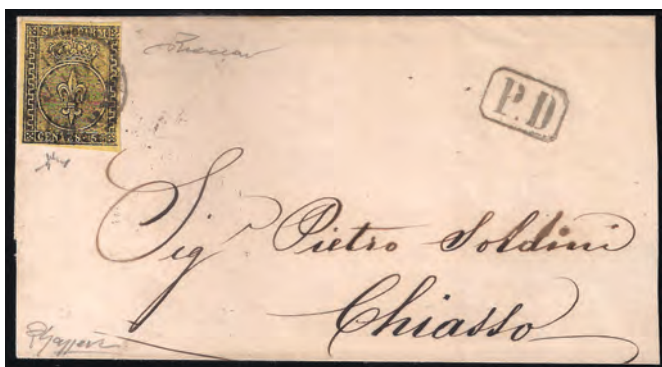 STATI PARM.
CENT. 5
P.D
Sigʳ Pietro Soldini
Chiasso